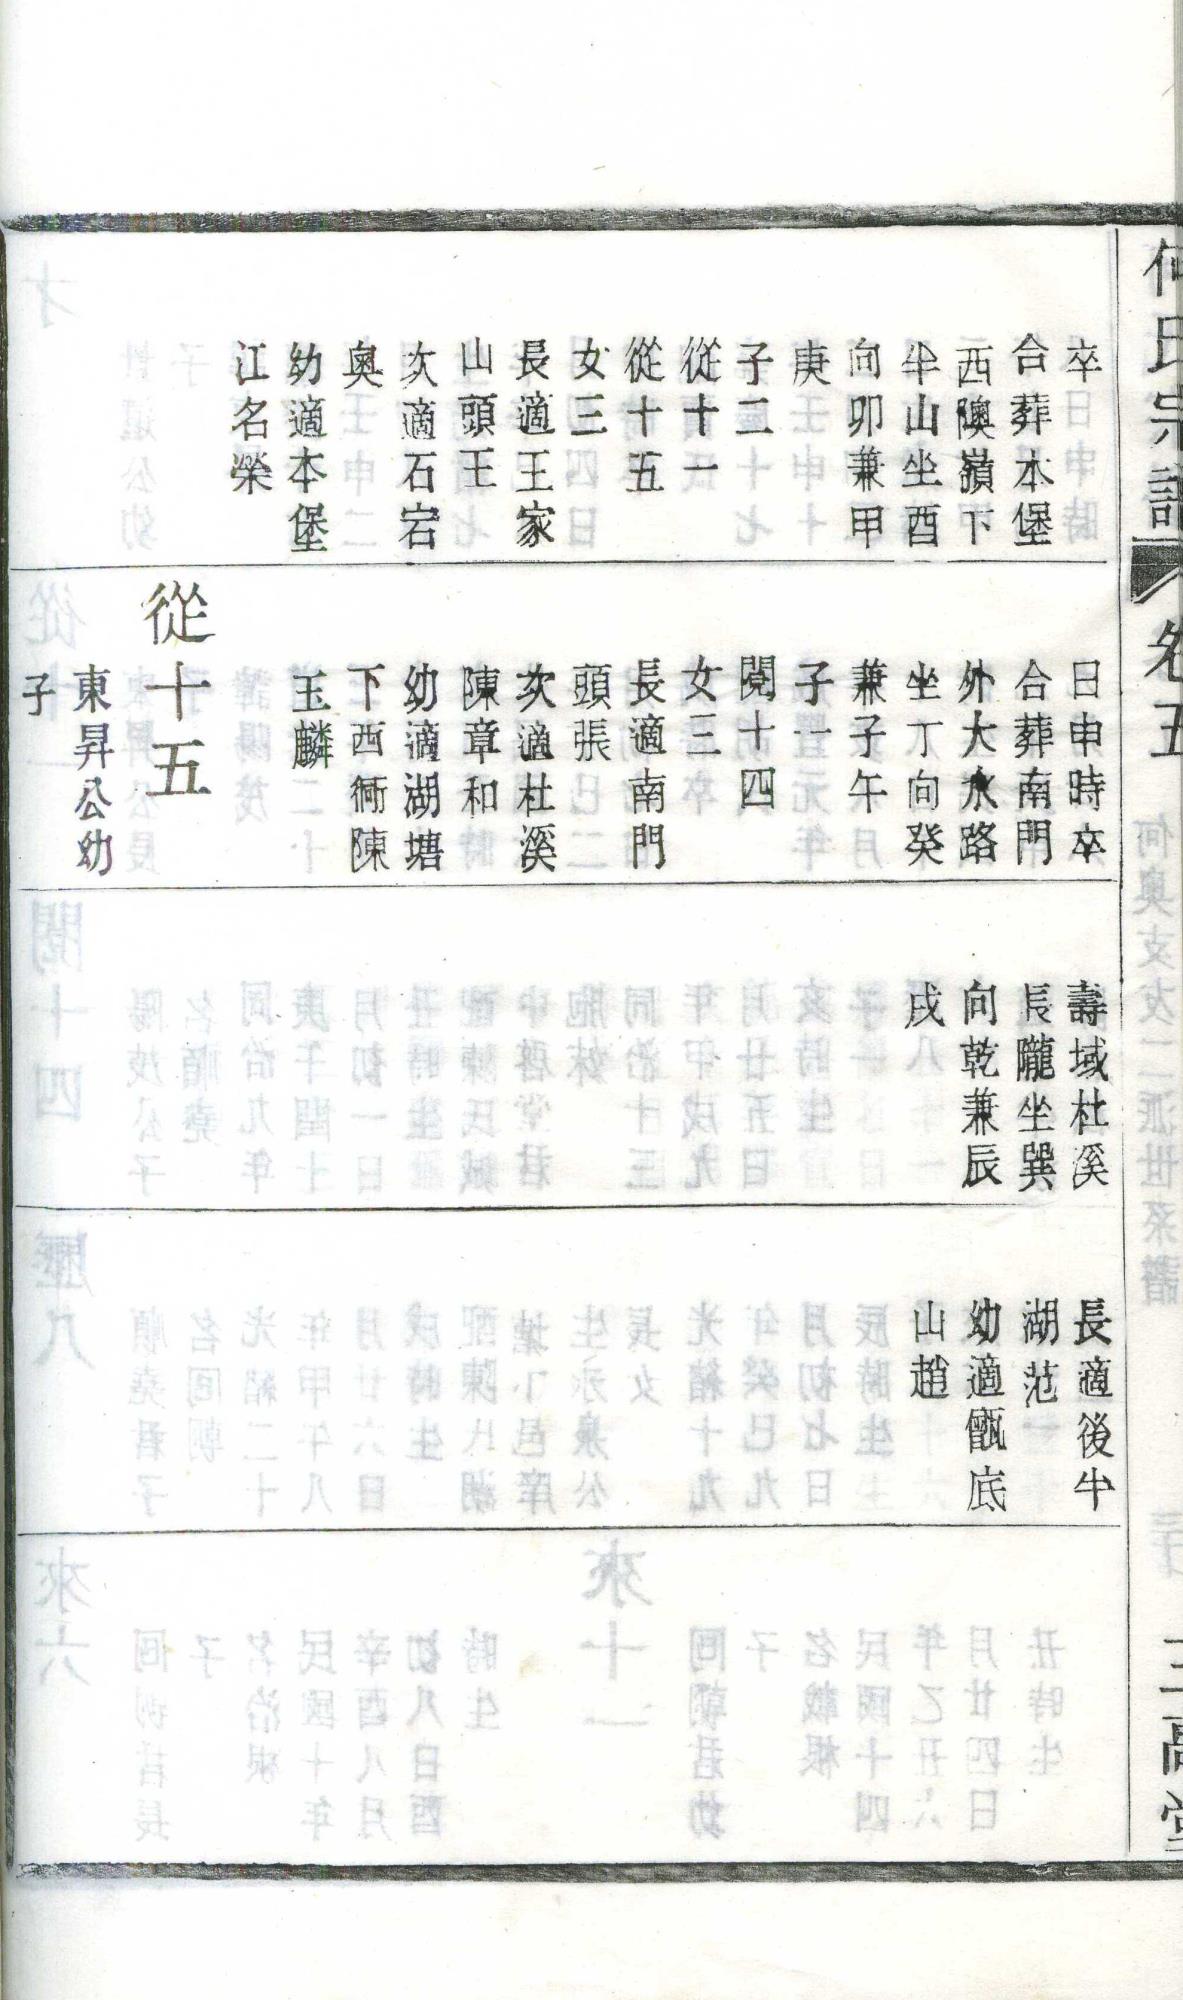 何氏宗譜
卷五
三高堂
卒
合葬本堡
西隩嶺下
半山坐酉
向卯兼甲
庚
子二
從十一
從十五
女三
長適王家
山頭王
次適石宕
奥
幼適本堡
江名榮
日申時卒
合葬南門
外大水路
坐丁向癸
兼子午
子一
閱十四
女三
長適南門
頭張
次適杜溪
陳章和
幼適湖塘
下西衕陳
玉麟
從十五
東昇公幼
子
壽域杜溪
長隴坐巽
向乾兼辰
戌
長適後牛
湖范
幼適甑底
山趙